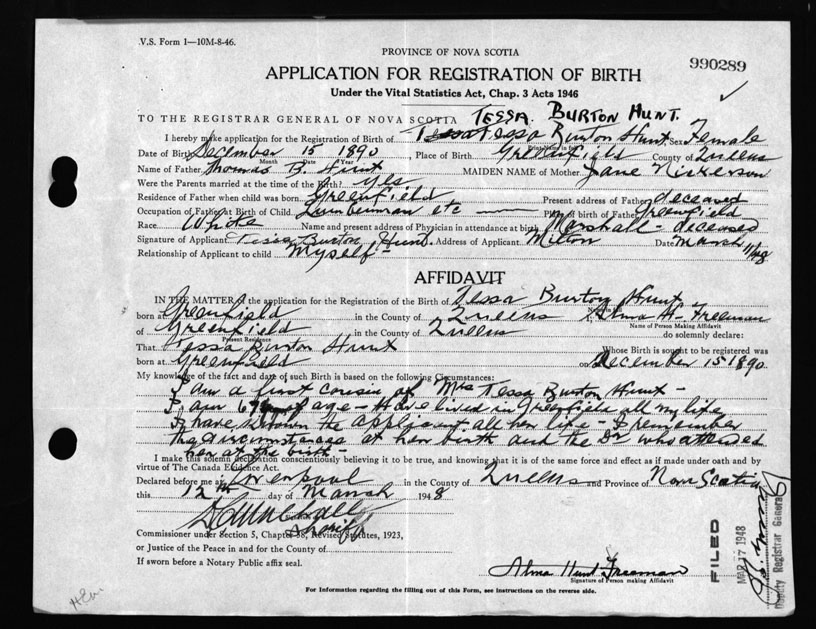 V.S. Form 1—10M-8-46.
PROVINCE OF NOVA SCOTIA
990289
APPLICATION FOR REGISTRATION OF BIRTH
Under the Vital Statistics Act, Chap. 3 Acts 1946
TO THE REGISTRAR GENERAL OF NOVA SCOTIA TESSA BURTON HUNT.
I hereby make application for the Registration of Birth of Tessa Burton Hunt Sex Female
Date of Birth December 15 1890 Place of Birth Greenfield County of Queens
Month Date Year
Name of Father Thomas B. Hunt MAIDEN NAME of Mother Jane Nickerson
Were the Parents married at the time of the Birth? yes
Residence of Father when child was born Greenfield Present address of Father deceased
Occupation of Father at Birth of Child Lumberman etc Place of birth of Father Greenfield
Race White Name and present address of Physician in attendance at birth Marshall - deceased
Signature of Applicant Tessa Burton Hunt Address of Applicant Milton Date March 11/48
Relationship of Applicant to child Myself -
AFFIDAVIT
IN THE MATTER of the application for the Registration of the Birth of Tessa Burton Hunt
born at Greenfield in the County of Queens Alma H. Freeman
Name of Person Making Affidavit
of Greenfield in the County of Queens do solemnly declare:
Present Residence
That Tessa Burton Hunt Whose Birth is sought to be registered was
born at Greenfield on December 15 1890.
My knowledge of the fact and date of such Birth is based on the following Circumstances:
I am a first cousin of Mrs Tessa Burton Hunt -
I am 69 of age - Have lived in Greenfield all my life
I have known the applicant all her life - I remember
the circumstances at her birth and the Dr who attended
her at the birth -
I make this solemn declaration conscientiously believing it to be true, and knowing that it is of the same force and effect as if made under oath and by
virtue of The Canada Evidence Act.
Declared before me at Liverpool in the County of Queens and Province of Nova Scotia
this 12th day of March 1948
Commissioner under Section 5, Chapter 38, Revised Statutes, 1923,
or Justice of the Peace in and for the County of
If sworn before a Notary Public affix seal.
Alma Hunt Freeman
Signature of Person making Affidavit
For Information regarding the filling out of this Form, see instructions on the reverse side.
FILED
MAR 17 1948
Deputy Registrar General